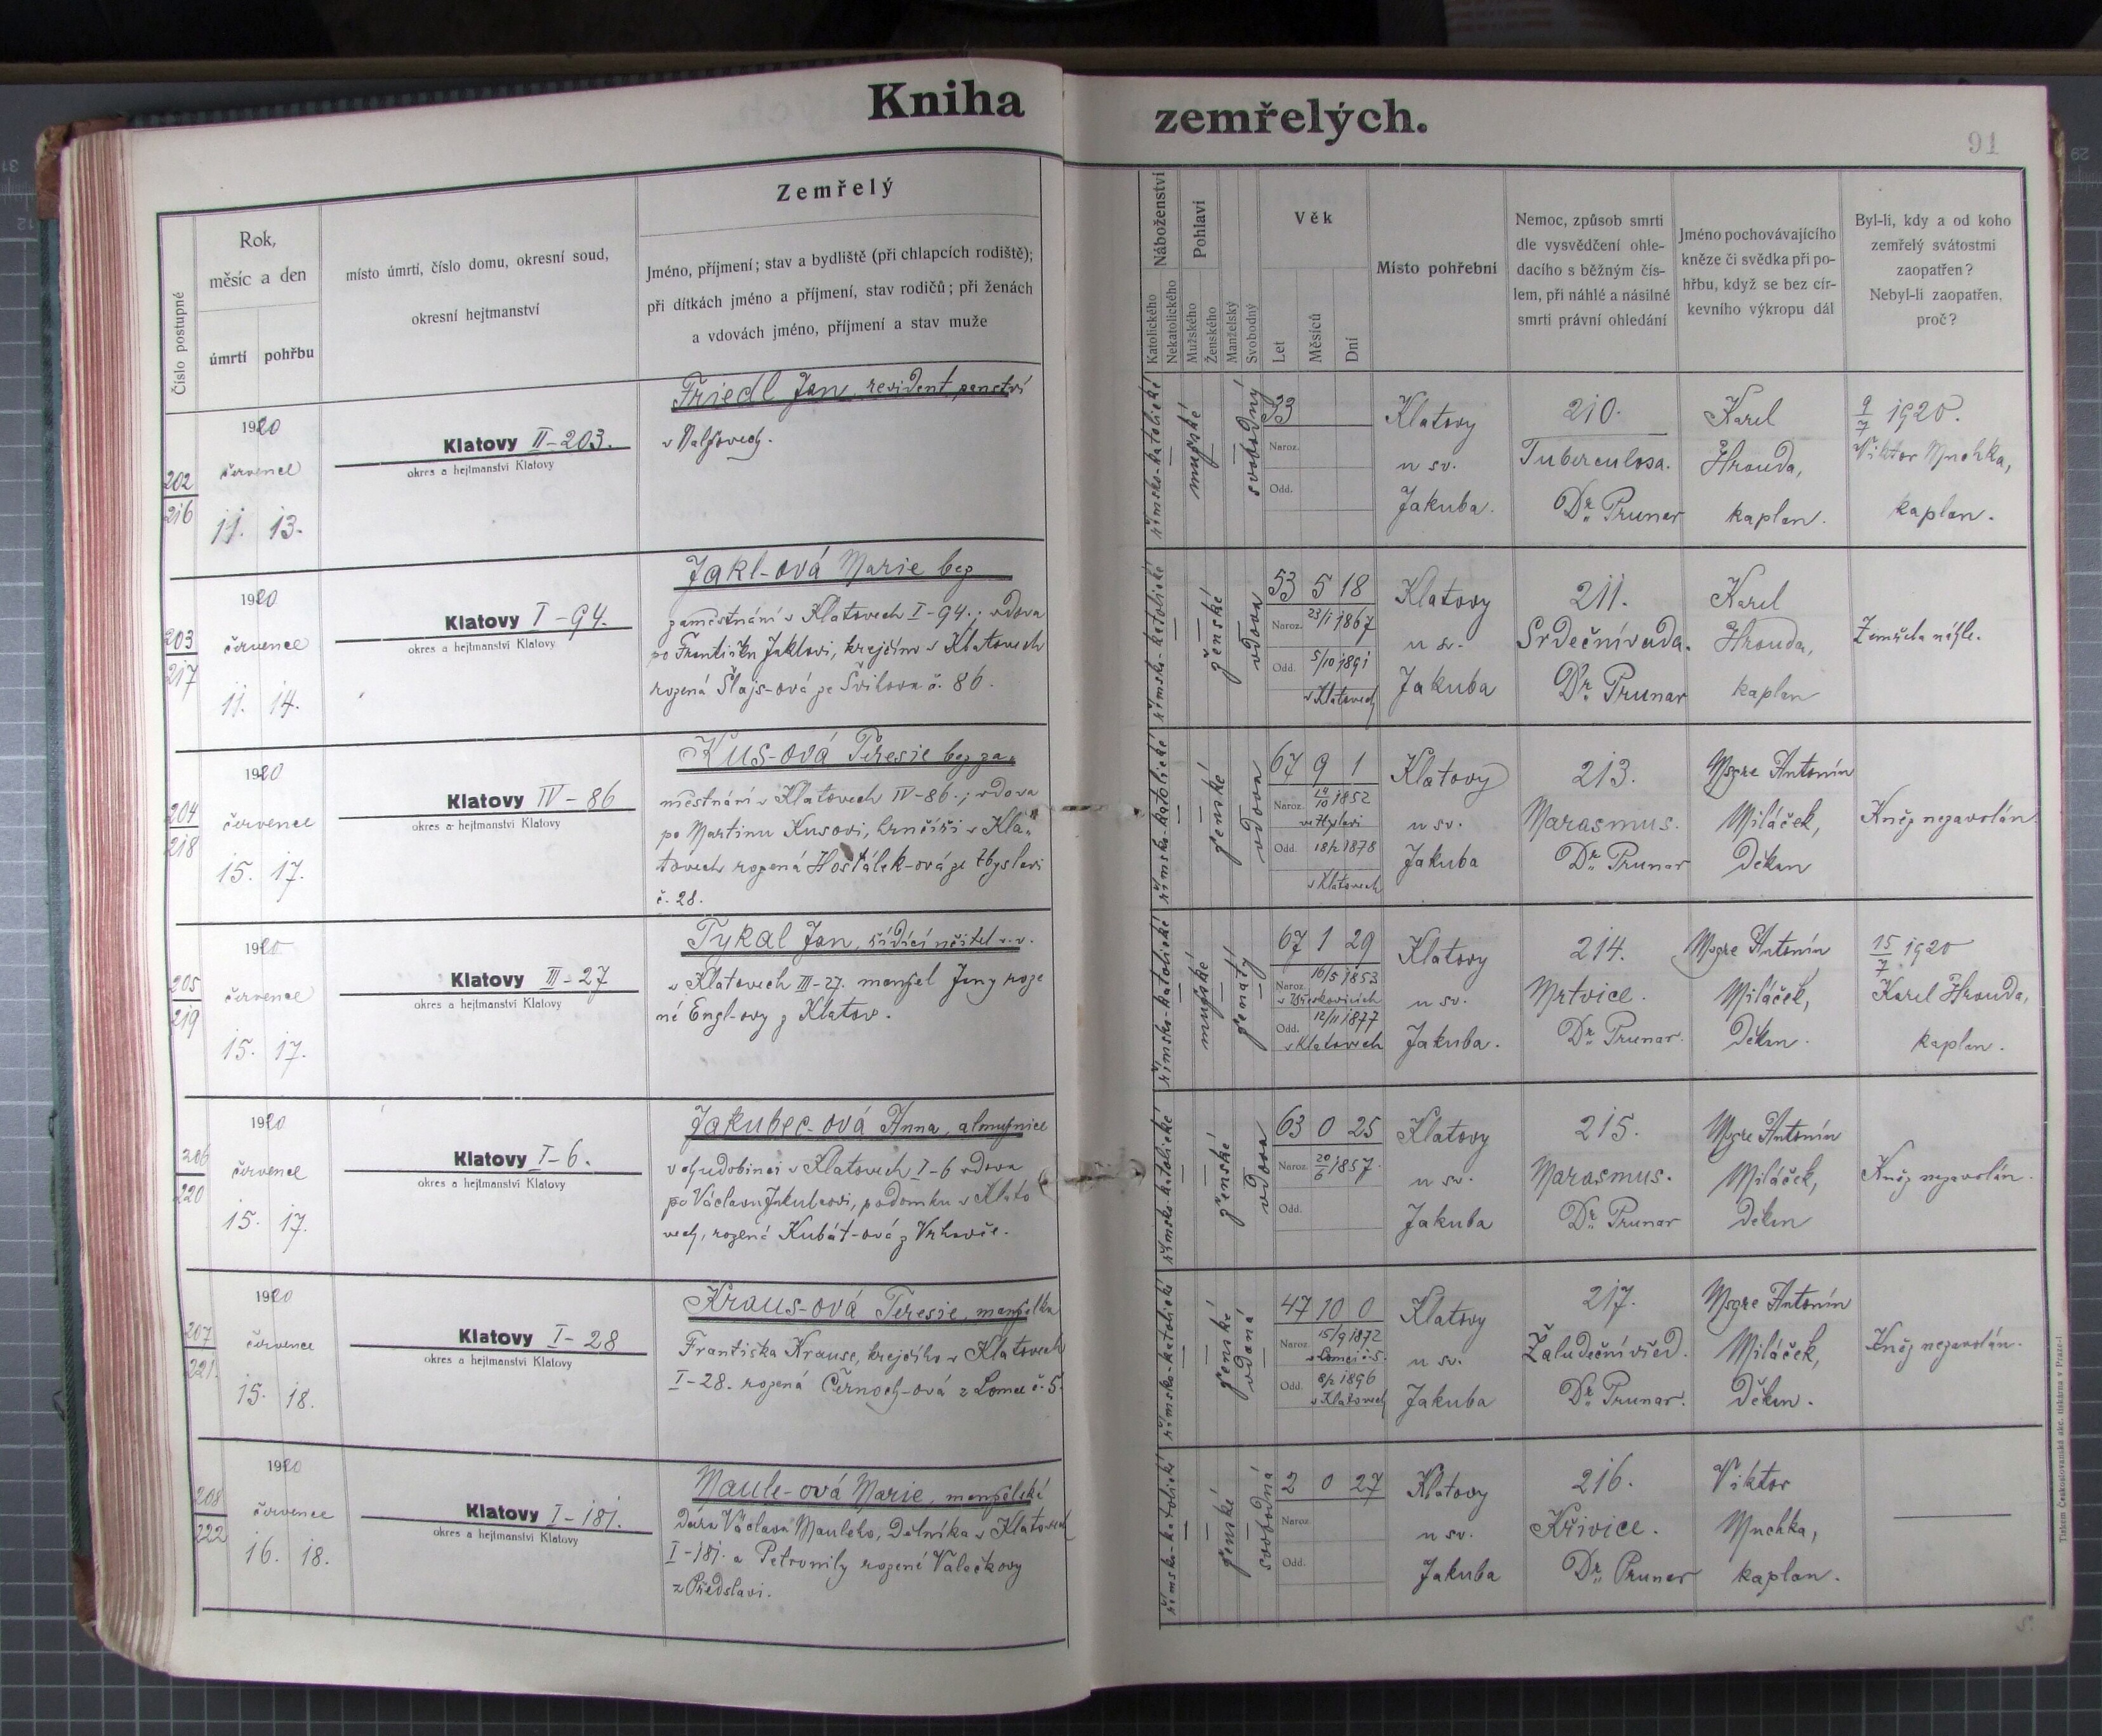 Kniha zemřelých.
91
Číslo postupné
Rok,
měsíc a den
úmrtí pohřbu
místo úmrtí, číslo domu, okresní soud,
okresní hejtmanství
Zemřelý
Jméno, příjmení; stav a bydliště (při chlapcích rodiště);
při dítkách jméno a příjmení, stav rodičů; při ženách
a vdovách jméno, příjmení a stav muže
Náboženství
Katolického
Nekatolického
Pohlaví
Mužského
Ženského
Manželský
Svobodný
Věk
Let
Měsíců
Dní
Místo pohřební
Nemoc, způsob smrti
dle vysvědčení ohle-
dacího s běžným čís-
lem, při náhlé a násilné
smrti právní ohledání
Jméno pochovávajícího
kněze či svědka při po-
hřbu, když se bez cír-
kevního výkropu dál
Byl-li, kdy a od koho
zemřelý svátostmi
zaopatřen?
Nebyl-li zaopatřen,
proč?
202
216
1920
července
11. 13.
Klatovy II-203.
okres a hejtmanství Klatovy
Friedl Jan, revident panství
římsko-katolické
mužské
svobodný
33
Naroz.
Odd.
Klatovy
u sv.
Jakuba.
210.
Tuberculosa.
Dr. Prunar
Karel
Hrouda,
kaplan.
9/7 1920.
Viktor Muchka,
kaplan.
203
217
1920
července
11. 14.
Klatovy I-94.
okres a hejtmanství Klatovy
Jakl-ová Marie bez
zaměstnání v Klatovech I-94.; vdova
po Františku Jaklovi, krejčím v Klatovech
rozená Šlajs-ová ze Svihova č. 86.
římsko-katolické
ženské
vdova
53 5 18
Naroz. 23/1 1867
Odd. 5/10 1891
v Klatovech
Klatovy
u sv.
Jakuba
211.
Srdeční vada.
Dr. Prunar
Karel
Hrouda,
kaplan
Zemřela náhle.
204
218
1920
července
15. 17.
Klatovy IV-86
okres a hejtmanství Klatovy
Kus-ová Teresie bez za-
městnání v Klatovech IV-86.; vdova
po Martinu Kusovi, hrnčíři v Kla-
tovech rozená Hostálek-ová ze Zbyslavi
č. 28.
římsko-katolické
ženské
vdova
67 9 1
Naroz. 14/10 1852
Odd. 18/2 1878
v Klatovech
Klatovy
u sv.
Jakuba
213.
Marasmus.
Dr. Prunar
Msgre Antonín
Miláček,
Děkan
Kněz nezavolán.
205
219
1920
července
15. 17.
Klatovy III-27
okres a hejtmanství Klatovy
Tykal Jan, řídící učitel v.v.
v Klatovech III-27. manžel Jany roze
né Engl-ovy z Klatov.
římsko-katolické
mužské
ženatý
67 1 29
Naroz. 16/5 1853
Odd. 12/11 1877
v Klatovech
Klatovy
u sv.
Jakuba.
214.
Mrtvice.
Dr. Prunar.
Msgre Antonín
Miláček,
Děkan.
15/7 1920
Karel Hrouda,
kaplan.
206
220
1920
července
15. 17.
Klatovy I-6.
okres a hejtmanství Klatovy
Jakubec-ová Anna, almužnice
v chudobinci v Klatovech I-6 vdova
po Václavu Jakubcovi, podomku v Klato
vech, rozená Kubát-ová z Vrhavče.
římsko-katolické
ženské
vdova
63 0 25
Naroz. 20/6 1857.
Odd.
Klatovy
u sv.
Jakuba
215.
Marasmus.
Dr. Prunar
Msgre Antonín
Miláček,
děkan
Kněz nezavolán.
207
221.
1920
července
15. 18.
Klatovy I-28
okres a hejtmanství Klatovy
Kraus-ová Teresie, manželka
Františka Krause, krejčího v Klatovech
I-28. rozená Černoch-ová z Lomce č. 5
římsko-katolické
ženské
vdaná
47 10 0
Naroz. 15/9 1872
v Lomci č. 5.
Odd. 8/2 1896
v Klatovech
Klatovy
u sv.
Jakuba
217.
Žaludeční vřed.
Dr. Prunar.
Msgre Antonín
Miláček,
Děkan.
Kněz nezavolán.
208
222
1920
července
16. 18.
Klatovy I-181.
okres a hejtmanství Klatovy
Maule-ová Marie, manželská
dcera Václava Mauleho, Dělníka v Klatovech
I-181. a Petronily rozené Valečkovy
z Předslavi.
římsko-katolické
ženské
svobodná
2 0 27
Naroz.
Odd.
Klatovy
u sv.
Jakuba
216.
Křivice.
Dr. Prunar
Viktor
Muchka,
kaplan.
Tiskem Československé akc. tiskárna v Praze-I